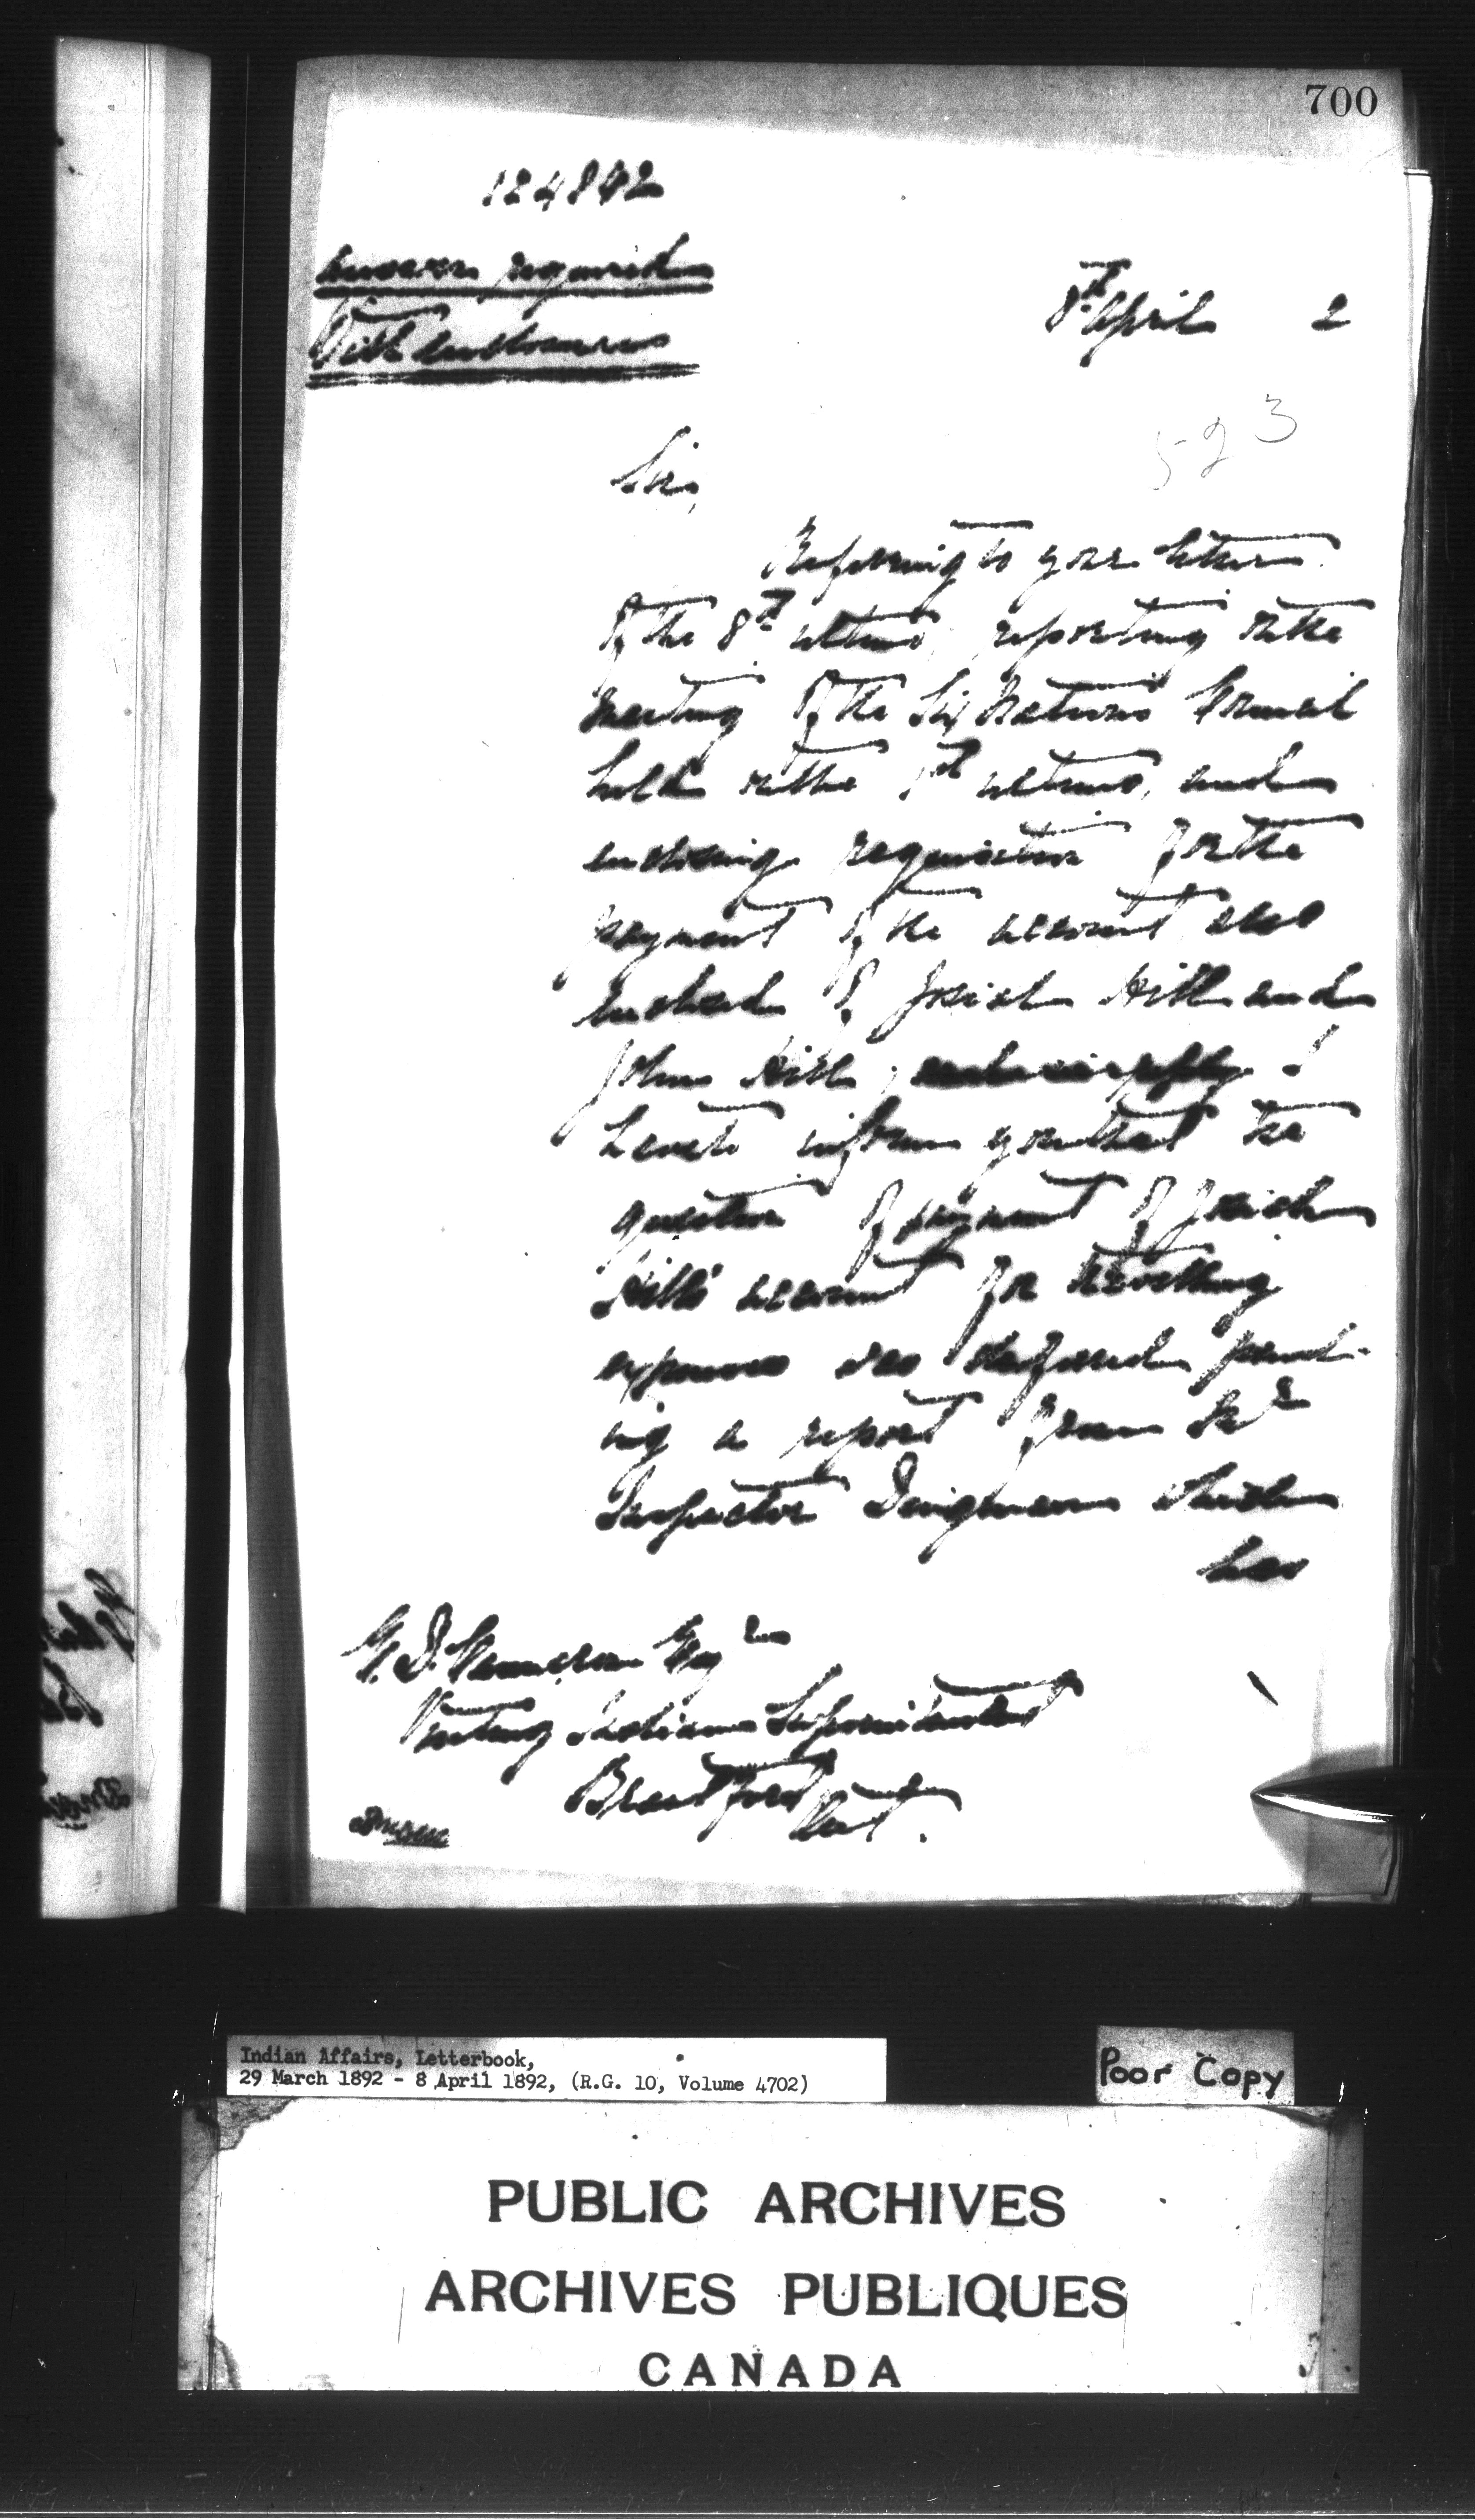 700
124842
Answer required
With enclosures
8th April 2
523
Sir,
Referring to your letter
of the 8th ultimo, reporting on the
meeting of the Six Nations Council
held on the 1st ultimo, and
enclosing requisition for the
payment of the account also
enclosed of Josiah Hill and
John Hill, I
have to inform you that the
question of payment of Josiah
Hill's account for travelling
expenses was deferred pend-
ing a report from Mr
Inspector Dingman which
has
E. D. Cameron Esqre
Visiting Indian Superintendent
Brantford
Ont.
Indian Affairs, Letterbook,
29 March 1892 - 8 April 1892, (R.G. 10, Volume 4702)
Poor Copy
PUBLIC ARCHIVES
ARCHIVES PUBLIQUES
CANADA